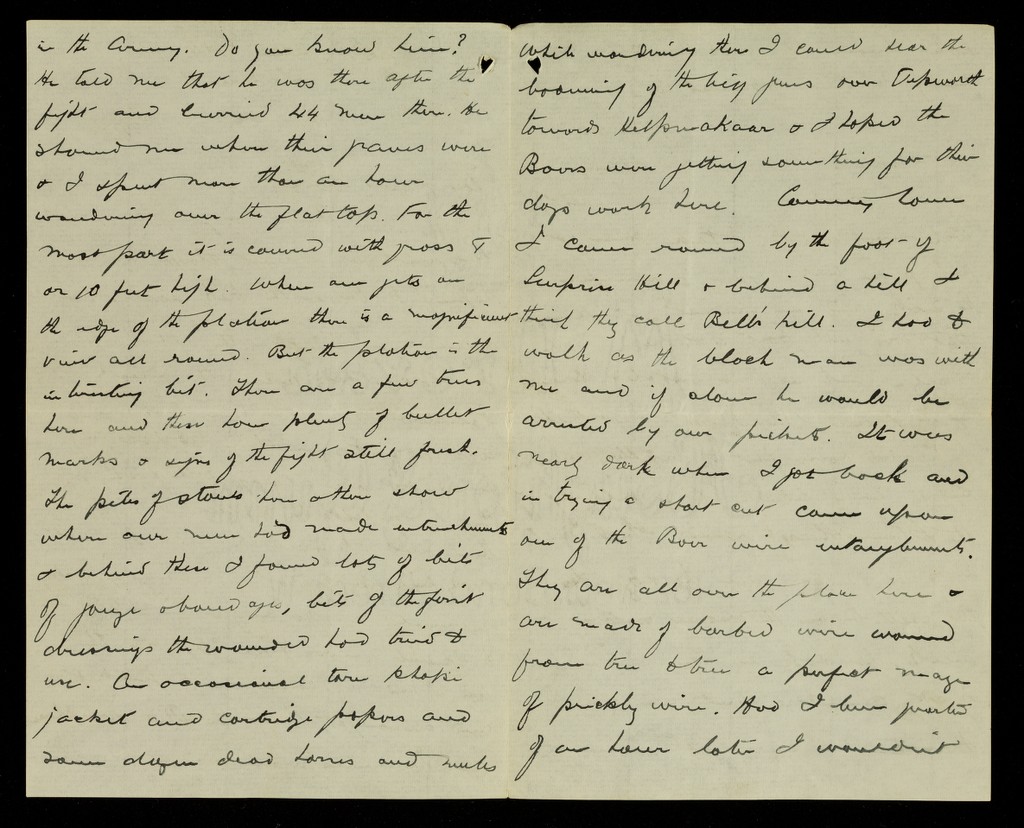 in the Army. Do you know him?
He told me that he was there after the
fight and buried 44 men there. He
showed me where their graves were
& I spent more than an hour
wandering over the flat top. For the
most part it is covered with grass 8
or 10 feet high. When one gets on
the edge of the plateau there is a magnificent
view all round. But the plateau is the
interesting bit. There are a few trees
here and these have plenty of bullet
marks & signs of the fight still fresh.
The piles of stones here & there show
where our men had made entrenchments
& behind these I found lots of bits
of gauze & bandages, bits of the first
dressings the wounded had tried to
use. An occasional torn khaki
jacket and cartridge papers and
some dozen dead horses and mules
While wandering there I could hear the
booming of the big guns over Depworth
towards Helpmakaar & I hoped the
Boers were getting something for their
days work here. Coming home
I came round by the foot of
Surprise Hill & behind a hill I
think they call Bell's hill. I had to
walk as the black man was with
me and if alone he would be
arrested by our pickets. It was
nearly dark when I got back and
in trying a short cut came upon
one of the Boer wire entanglements.
They are all over the place here &
are made of barbed wire wound
from tree to tree a perfect maze
of prickly wire. Had I been quarter
of an hour later I wouldn't